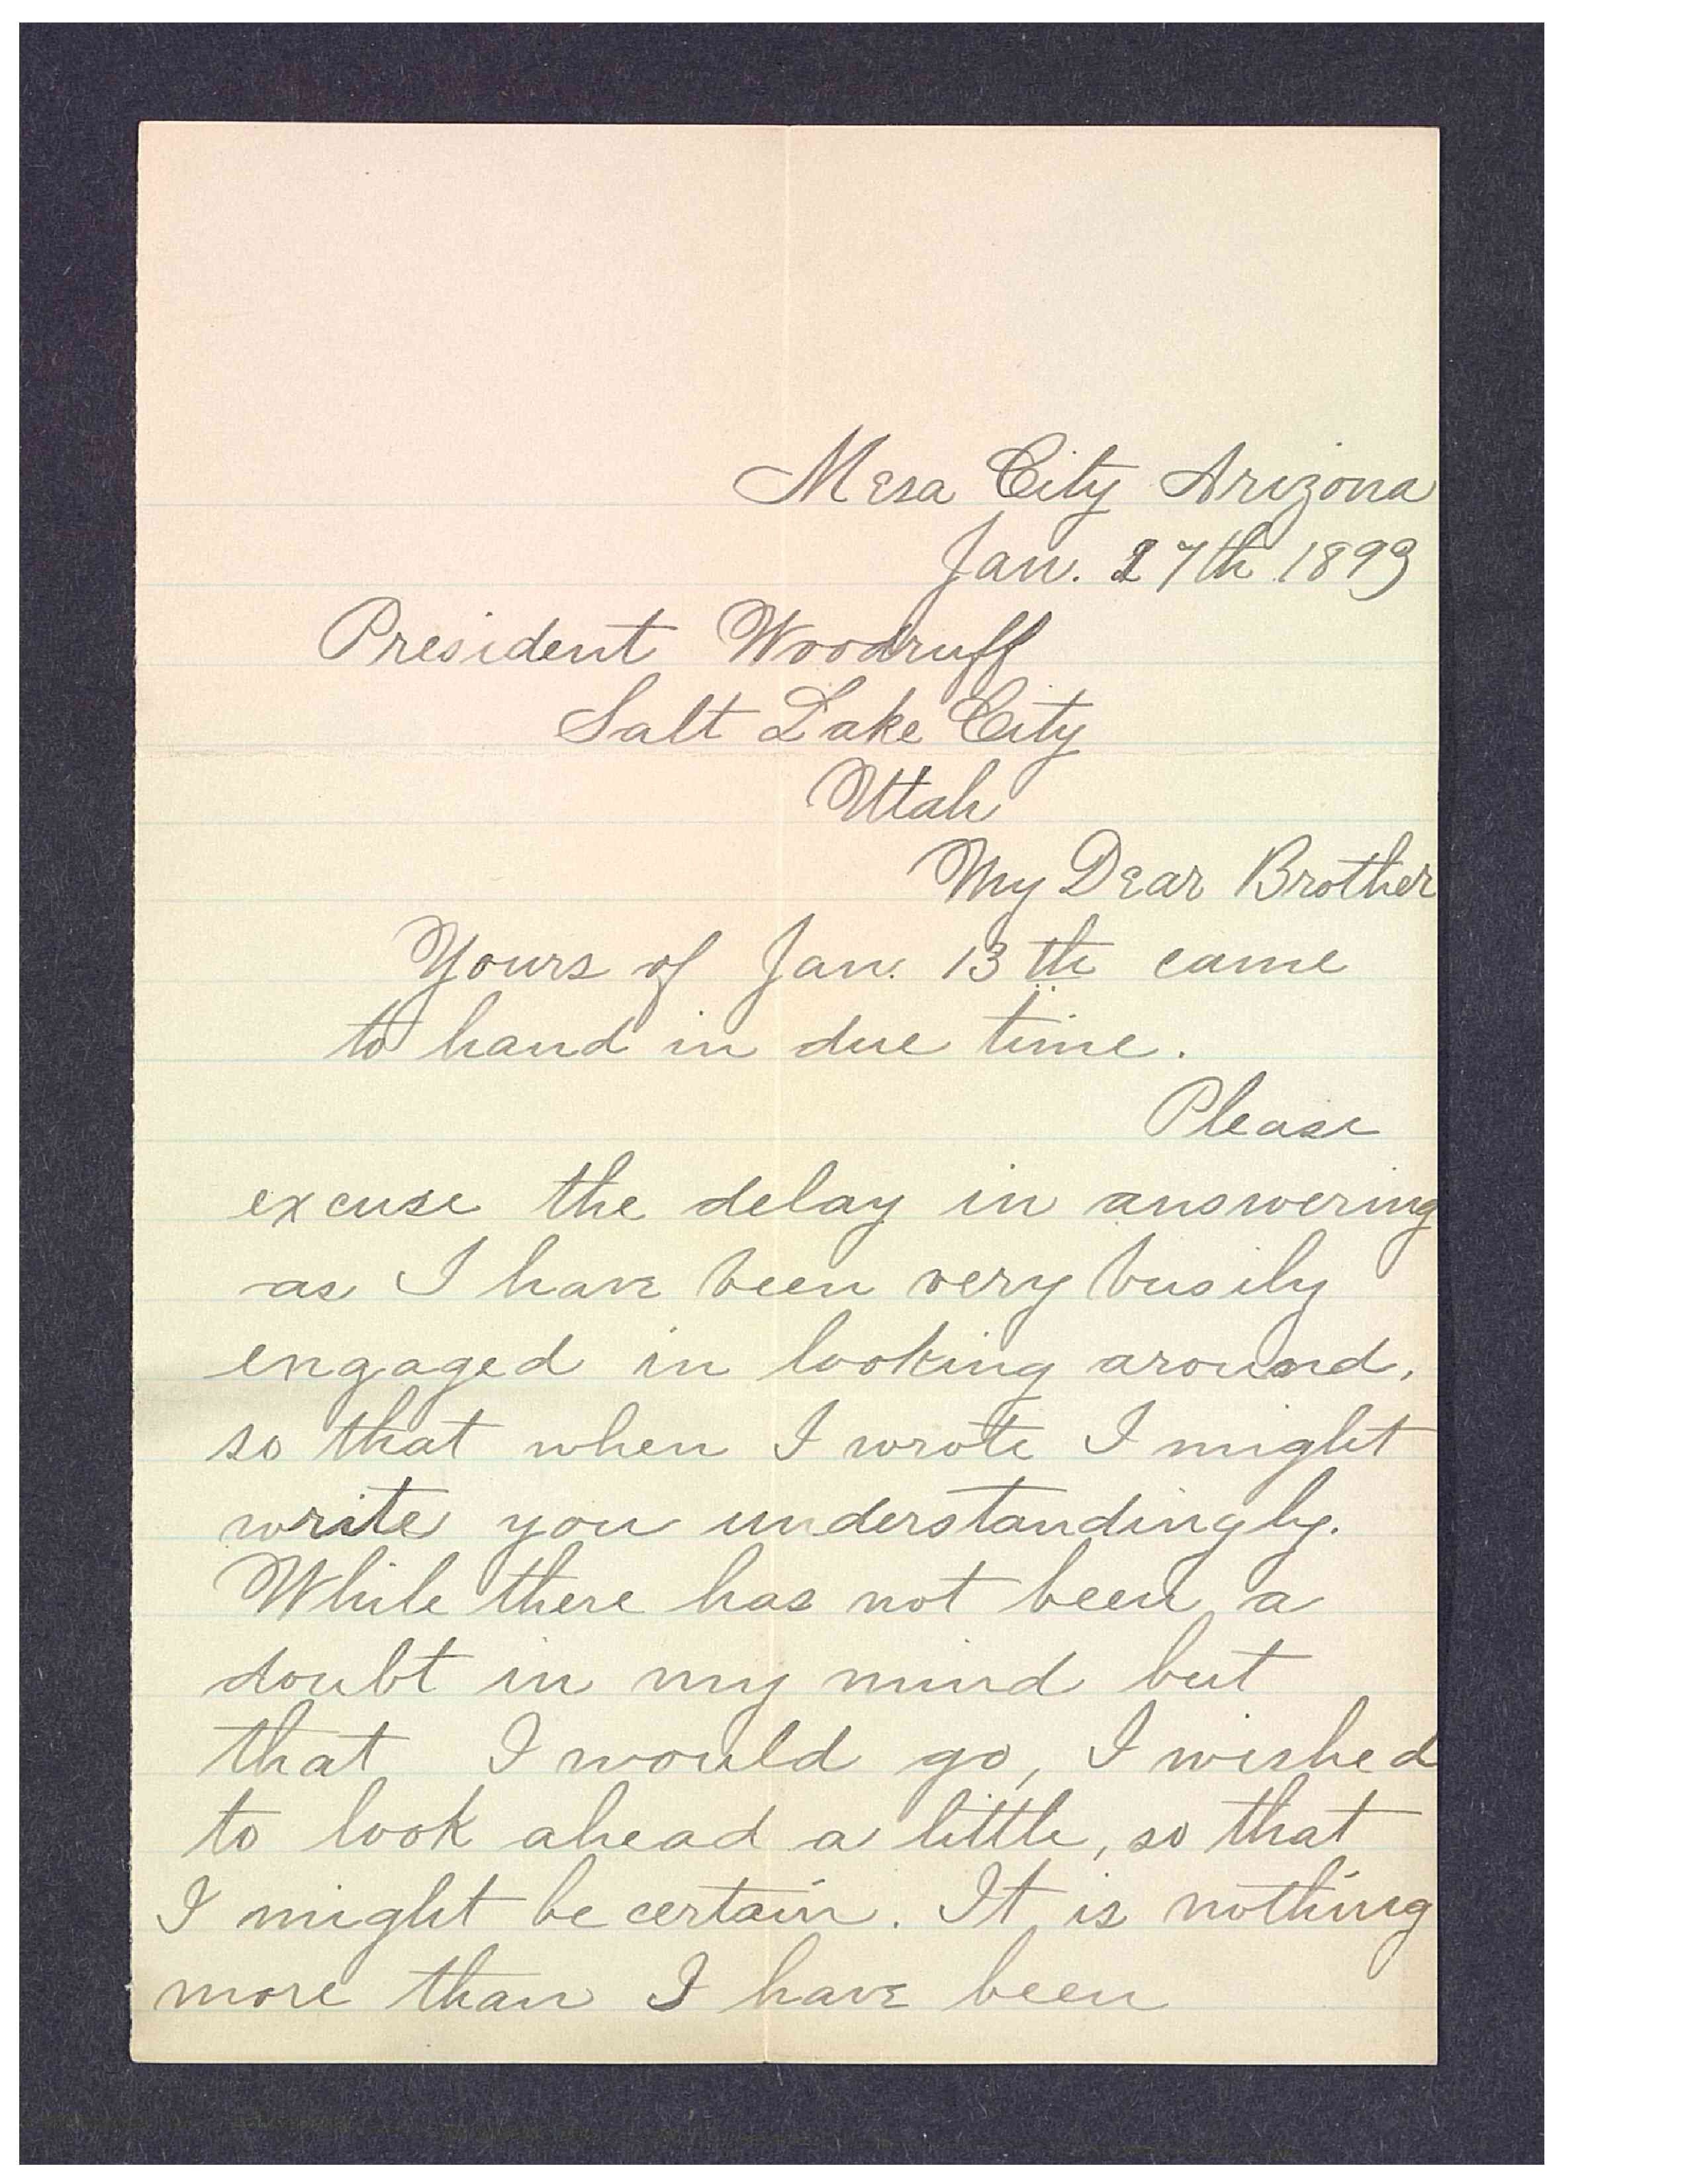 Mesa City Arizona
Jan. 27th 1893
President Woodruff
Salt Lake City
Utah
My Dear Brother
Yours of Jan. 13th came
to hand in due time.
Please
excuse the delay in answering
as I have been very busily
engaged in looking around,
so that when I wrote I might
write you understandingly.
While there has not been a
doubt in my mind but
that I would go, I wished
to look ahead a little, so that
I might be certain. It is nothing
more than I have been